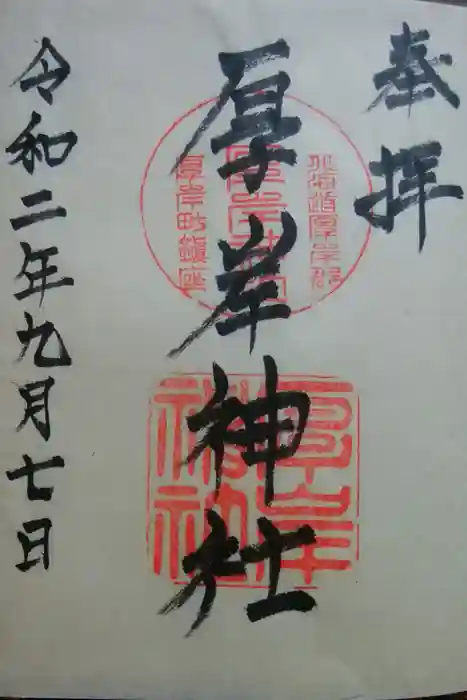 奉拝
北海道厚岸郡
厚岸神社
厚岸町鎮座
厚岸神社
厚岸神社
令和二年九月七日